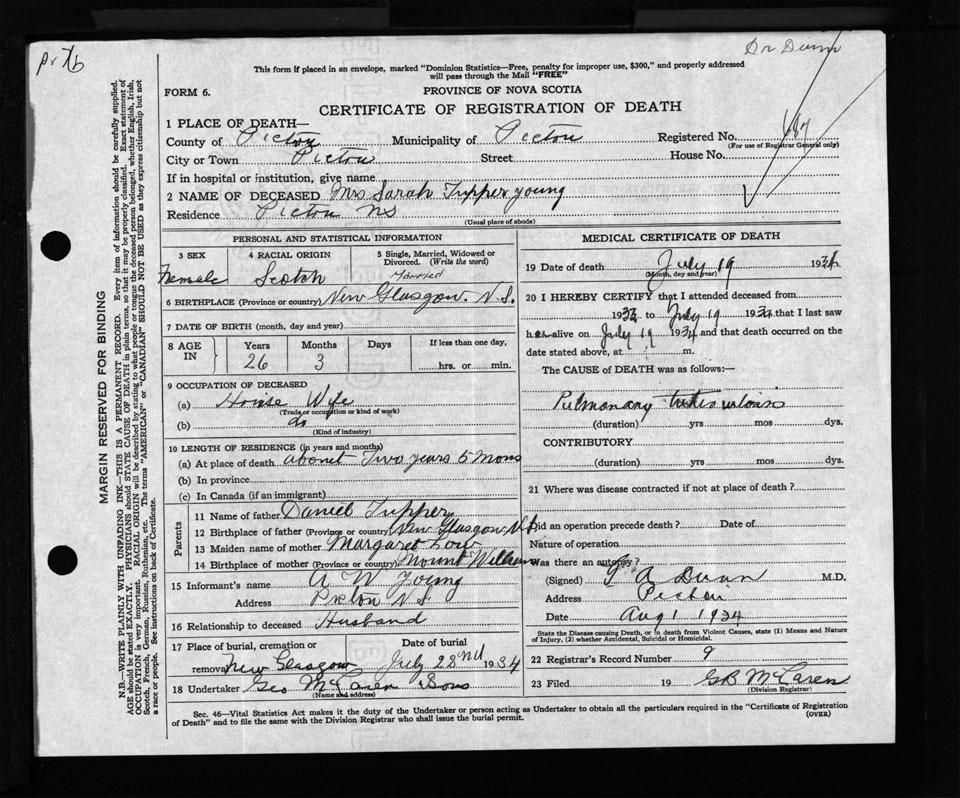 Dr Dunn
This form if placed in an envelope, marked "Dominion Statistics—Free, penalty for improper use, $300," and properly addressed
will pass through the Mail "FREE"
FORM 6.
PROVINCE OF NOVA SCOTIA
CERTIFICATE OF REGISTRATION OF DEATH
1 PLACE OF DEATH—
County of Pictou Municipality of Pictou Registered No. 687
(For use of Registrar General only)
City or Town Pictou Street House No.
If in hospital or institution, give name
2 NAME OF DECEASED Mrs Sarah Tupper Young
Residence Pictou NS
(Usual place of abode)
MARGIN RESERVED FOR BINDING
N.B.—WRITE PLAINLY WITH UNFADING INK—THIS IS A PERMANENT RECORD. Every item of information should be carefully supplied.
AGE should be stated EXACTLY. PHYSICIANS should STATE CAUSE OF DEATH in plain terms, so that it may be properly classified. Exact statement of
OCCUPATION is very important. RACIAL ORIGIN will be described by stating to what people or tongue the deceased person belonged, whether English, Irish,
Scotch, French, German, Russian, Ruthenian, etc. The terms "AMERICAN" or "CANADIAN" SHOULD NOT BE USED as they express citizenship but not
a race or people. See instructions on back of Certificate.
PERSONAL AND STATISTICAL INFORMATION
3 SEX 4 RACIAL ORIGIN 5 Single, Married, Widowed or
Divorced. (Write the word)
Female Scotch Married
6 BIRTHPLACE (Province or country) New Glasgow. N.S.
7 DATE OF BIRTH (month, day and year)
8 AGE IN Years Months Days If less than one day,
26 3 hrs. or min.
9 OCCUPATION OF DECEASED
(a) House Wife
(Trade or occupation or kind of work)
(b) do
(Kind of industry)
10 LENGTH OF RESIDENCE (in years and months)
(a) At place of death about Two years 5 Mons
(b) In province
(c) In Canada (if an immigrant)
Parents
11 Name of father Daniel Tupper
12 Birthplace of father (Province or country) New Glasgow N.S
13 Maiden name of mother Margaret Low
14 Birthplace of mother (Province or country) Mount William
15 Informant's name A W Young
Address Pictou N.S.
16 Relationship to deceased Husband
17 Place of burial, cremation or Date of burial
removal New Glasgow July 22nd 1934
18 Undertaker Geo McLaren Sons
(Name and address)
MEDICAL CERTIFICATE OF DEATH
19 Date of death July 19 1934
(Month, day and year)
20 I HEREBY CERTIFY that I attended deceased from
1933 to July 19 1934 that I last saw
her alive on July 19 1934 and that death occurred on the
date stated above, at m.
The CAUSE of DEATH was as follows:—
Pulmonary tuberculosis
(duration) yrs mos dys.
CONTRIBUTORY
(duration) yrs mos dys.
21 Where was disease contracted if not at place of death?
Did an operation precede death? Date of
Nature of operation
Was there an autopsy?
(Signed) G A Dunn M.D.
Address Pictou
Date Aug 1 1934
State the Disease causing Death, or in death from Violent Causes, state (1) Means and Nature
of Injury, (2) whether Accidental, Suicidal or Homicidal.
22 Registrar's Record Number 9
23 Filed 19 GB McLaren
(Division Registrar)
Sec. 46—Vital Statistics Act makes it the duty of the Undertaker or person acting as Undertaker to obtain all the particulars required in the "Certificate of Registration
of Death" and to file the same with the Division Registrar who shall issue the burial permit.
(OVER)